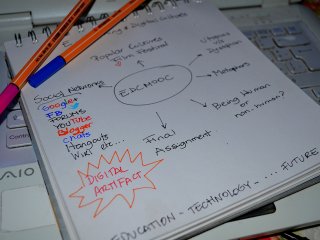 E-learning & Digital Cultures
Popular Cultures
Film Festival
Utopias vs
Dystopias
Metaphors
EDCMOOC
Being Human
or
non-human?
Final
Assignment
Social Networks
Google+
FB
FORUMS
YOUTUBE
Blogger
CHATS
Hangouts
Wiki etc...
DIGITAL
ARTIFACT
EDUCATION - TECHNOLOGY - .... FUTURE
VAIO